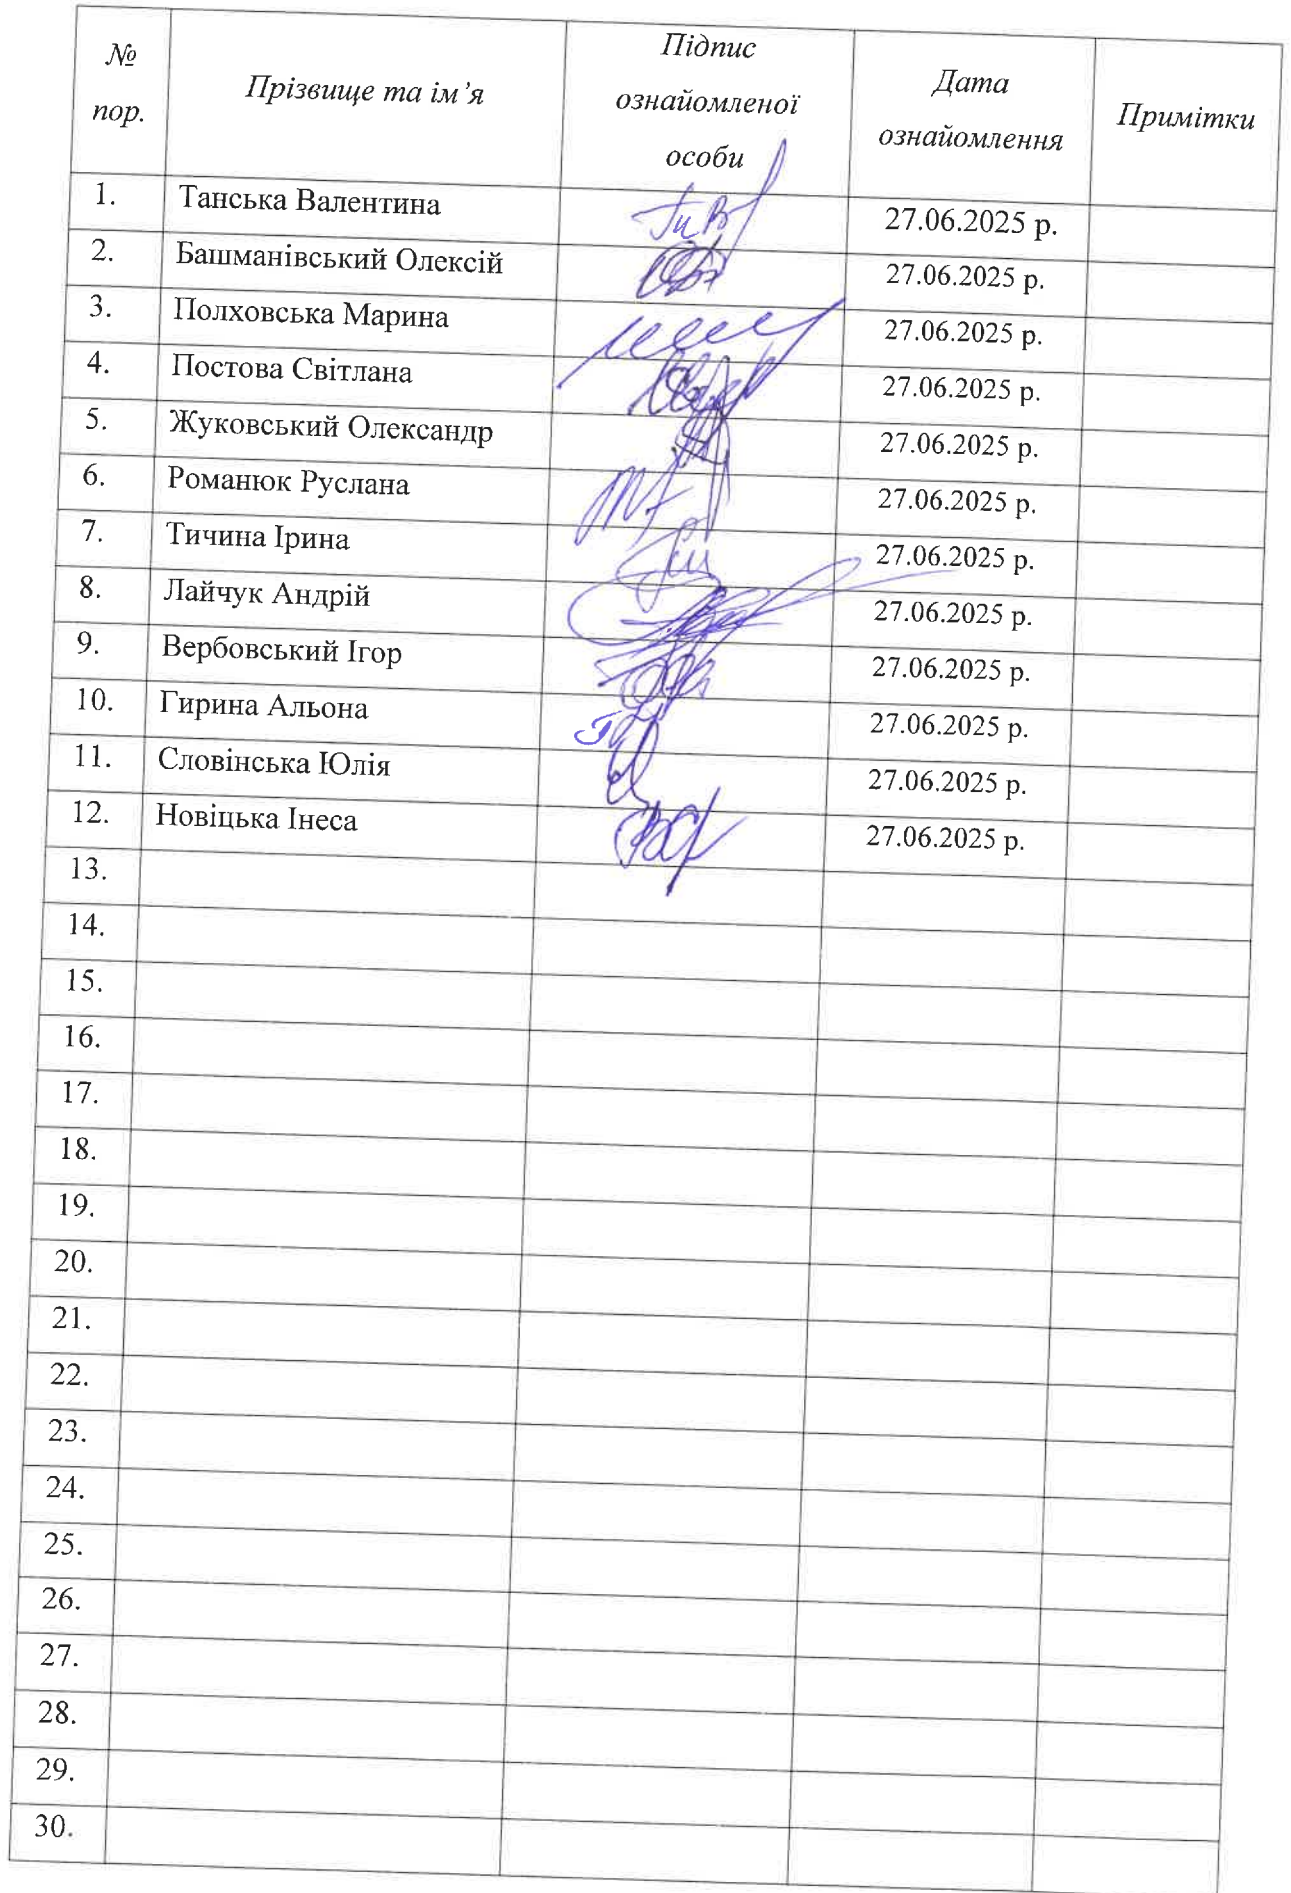 № пор. Прізвище та ім’я Підпис ознайомленої особи Дата ознайомлення Примітки
1. Танська Валентина 27.06.2025 р.
2. Башманівський Олексій 27.06.2025 р.
3. Полховська Марина 27.06.2025 р.
4. Постова Світлана 27.06.2025 р.
5. Жуковський Олександр 27.06.2025 р.
6. Романюк Руслана 27.06.2025 р.
7. Тичина Ірина 27.06.2025 р.
8. Лайчук Андрій 27.06.2025 р.
9. Вербовський Ігор 27.06.2025 р.
10. Гирина Альона 27.06.2025 р.
11. Словінська Юлія 27.06.2025 р.
12. Новіцька Інеса 27.06.2025 р.
13.
14.
15.
16.
17.
18.
19.
20.
21.
22.
23.
24.
25.
26.
27.
28.
29.
30.